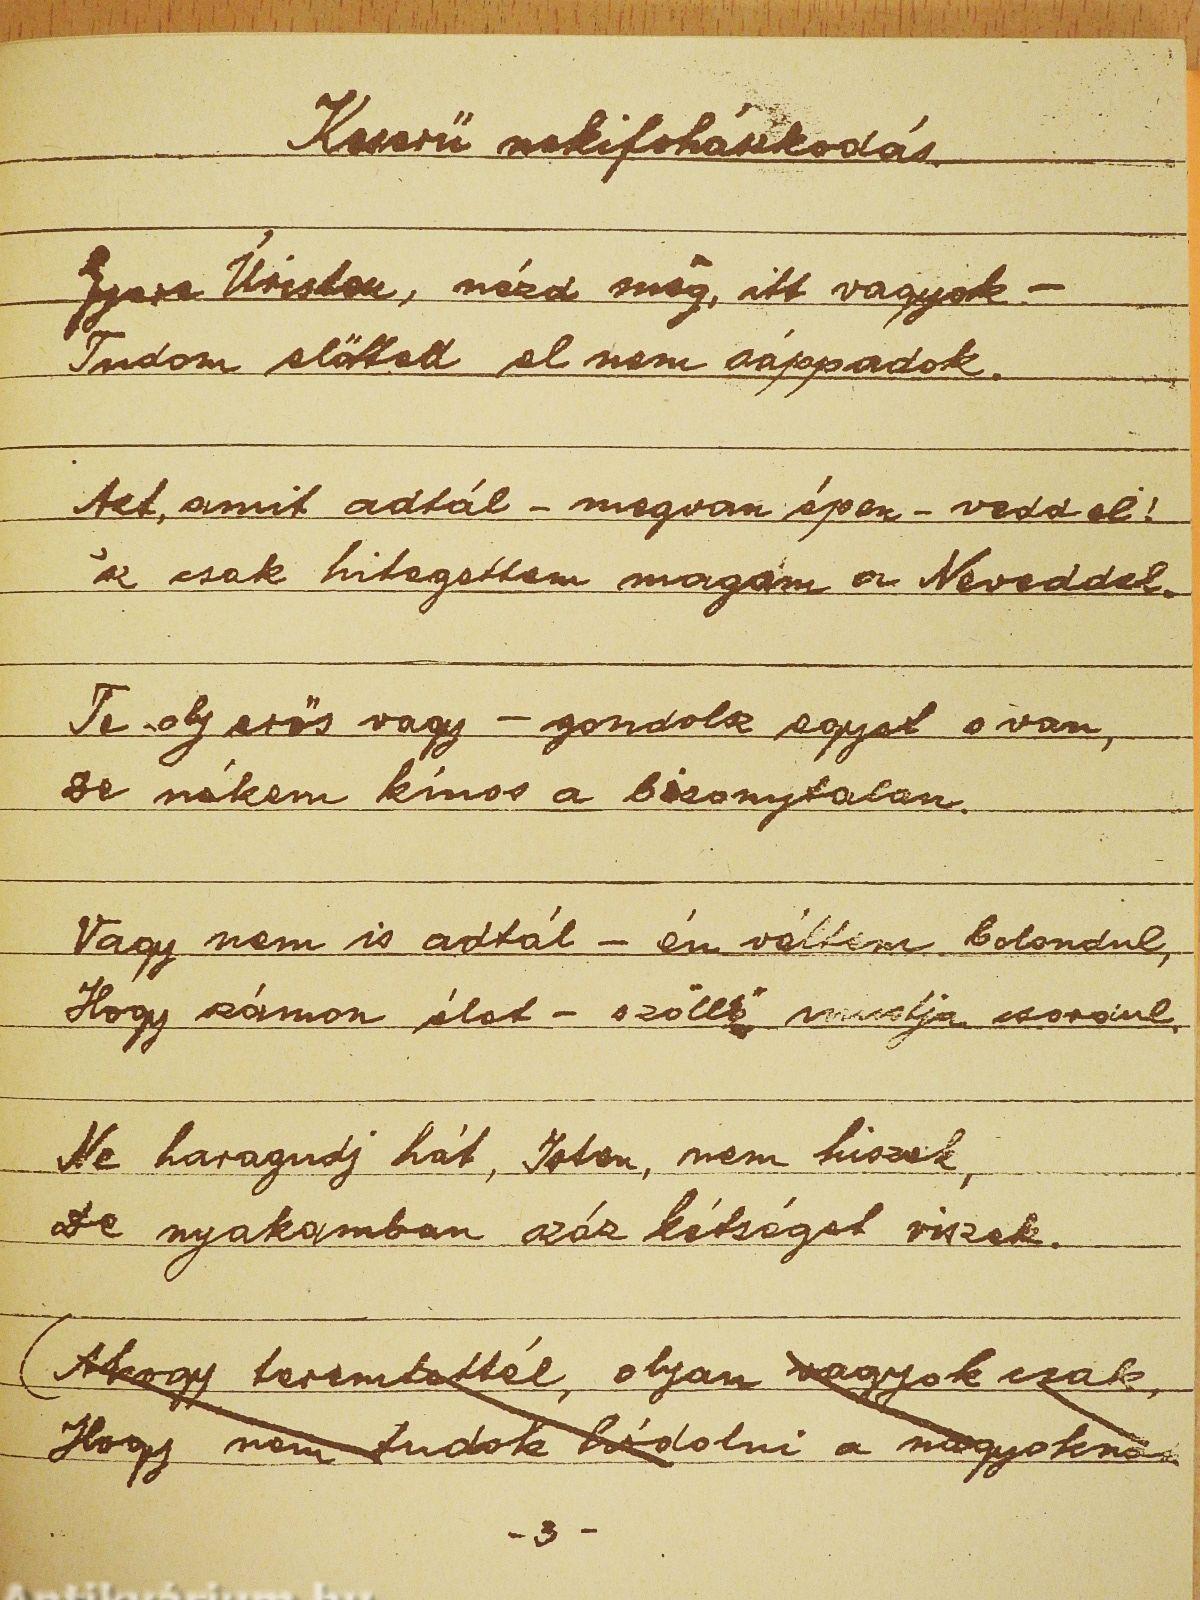 Keserü nekifohászkodás.
Gyere Úristen, nézd még, itt vagyok –
Tudom előtted el nem sáppadok.
Azt, amit adtál – megvan épen – vedd el!
Úgy csak hitegettem magam a Neveddel.
Te olj erős vagy – gondolsz egyet s van,
De nékem kínos a bizonytalan.
Vagy nem is adtál – én véltem bolondul,
Hogy számon élet – szöllő mustja csordul.
Ne haragudj hát, Isten, nem hiszek,
De nyakamban száz kétséget viszek.
(Ahogy teremtettél, olyan vagyok csak,
Hogy nem tudok hódolni a nagyoknak.
- 3 -
Antikvárium.hu